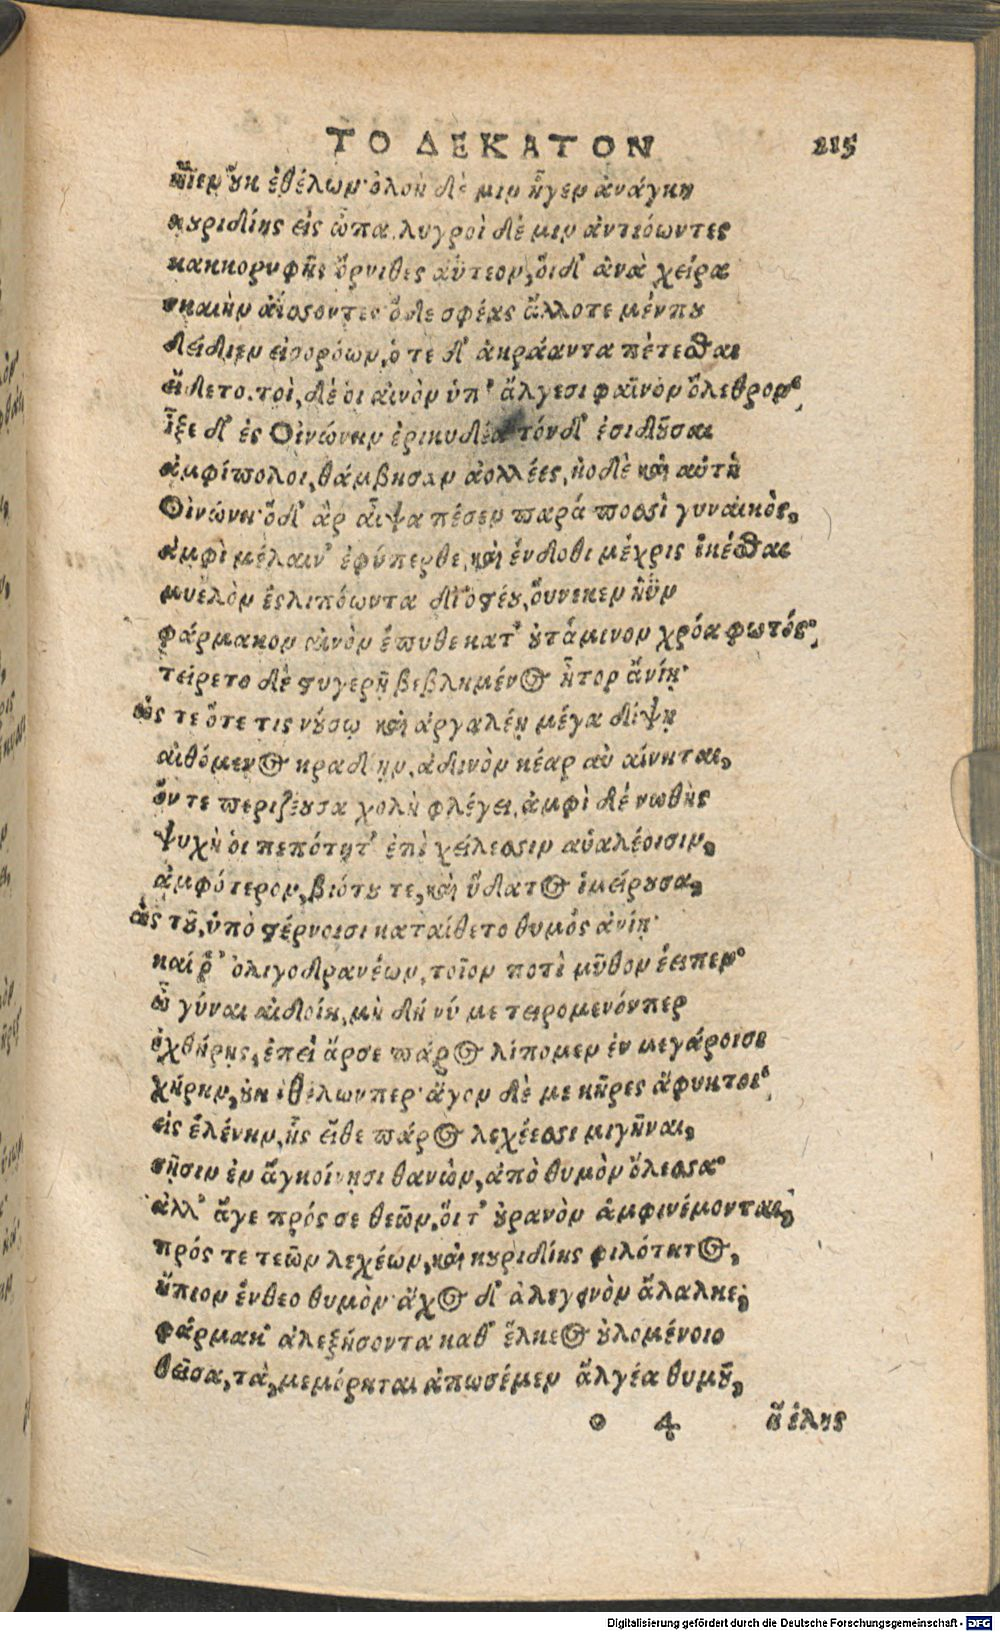 ΤΟ ΔΕΚΑΤΟΝ 215
ἤιεν οὐκ ἐθέλων· ὀλοὴ δέ μιν ἦγεν ἀνάγκη
κουριδίης εἰς ὦπα. λυγροὶ δέ μιν ἀντιόωντες
κακκορυφῆς ὄρνιθες ἀΰτεον, οἱ δ' ἀνὰ χεῖρα
σκαιὴν ἀΐσσοντες· ὁ δε σφέας ἄλλοτε μέν που
δείδιεν εἰσορόων, ὁ τε δ' ἀκράαντα πέτεσθαι
εἴδετο. τοὶ, δέ οἱ αἰνὸν ὑπ' ἄλγεσι φαῖνον ὄλεθρον·
ἷξε δ' ἐς Οἰνώνην ἐρικυδέα τόνδ' ἐσιδοῦσαι
ἀμφίπολοι, θάμβησαν ἀολλέες, ἠδὲ καὶ αὐτὴ
Οἰνώνη· ὁ δ' ἀρ αἶψα πέσεν παρά ποσσὶ γυναικὸς,
ἀμφὶ μέλαιν' ἐφύπερθε, καὶ ἔνδοθι μέχρις ἱκέσθαι
μυελὸν ἐς λιπόωντα δι' ὀστέου, οὕνεκεν ἠῢν
φάρμακον αἰνὸν ἔπυθε κατ' οὐτάμινον χρόα φωτός·
τείρετο δὲ στυγερῇ βεβλημένος ἦτορ ἀνίῃ·
ὡς τε ὅτε τις νούσῳ καὶ ἀργαλέῃ μέγα δίψῃ
αἰθόμενος κραδίην, ἀδινὸν κέαρ αὐαίνηται,
ὅν τε περιζείουσα χολὴ φλέγει, ἀμφὶ δέ νωθὴς
ψυχὴ οἱ πεπότητ' ἐπὶ χείλεσσιν αὐαλέοισιν,
ἀμφότερον, βιότου τε, καὶ ὕδατος ἱμείρουσα,
ὡς τοῦ, ὑπὸ στέρνοισι καταίθετο θυμός ἀνίῃ·
καί ῥ' ὀλιγοδρανέων, τοῖον ποτὶ μῦθον ἔειπεν·
ὦ γύναι αἰδοίη, μὴ δή νύ με τειρομενόνπερ
ἐχθήρῃς, ἐπεὶ ἄρ σε πάρος λίπομεν ἐν μεγάροισι
χήρην, οὐκ ἐθέλων περ· ἄγον δέ με κῆρες ἄφυκτοι·
εἰς ἑλένην, ἧς εἴθε πάρος λεχέεσσι μιγῆναι,
σῇσιν ἐν ἀγκοίνῃσι θανὼν, ἀπὸ θυμὸν ὄλεσσα·
ἀλλ' ἄγε πρός σε θεῶν, οἵ τ' οὐρανὸν ἀμφινέμονται,
πρός τε τεῶν λεχέων, καὶ κουριδίης φιλότητος,
ἤπιον ἔνθεο θυμὸν· ἄχος δ' ἀλεγεινὸν ἄλαλκε,
φάρμακ' ἀλεξήσοντα καθ' ἕλκεος οὐλομένοιο
θεῖσα, τὰ, μεμόρηται ἀπωσέμεν ἄλγέα θυμοῦ,
ο 4 ἢ ἐλῃς